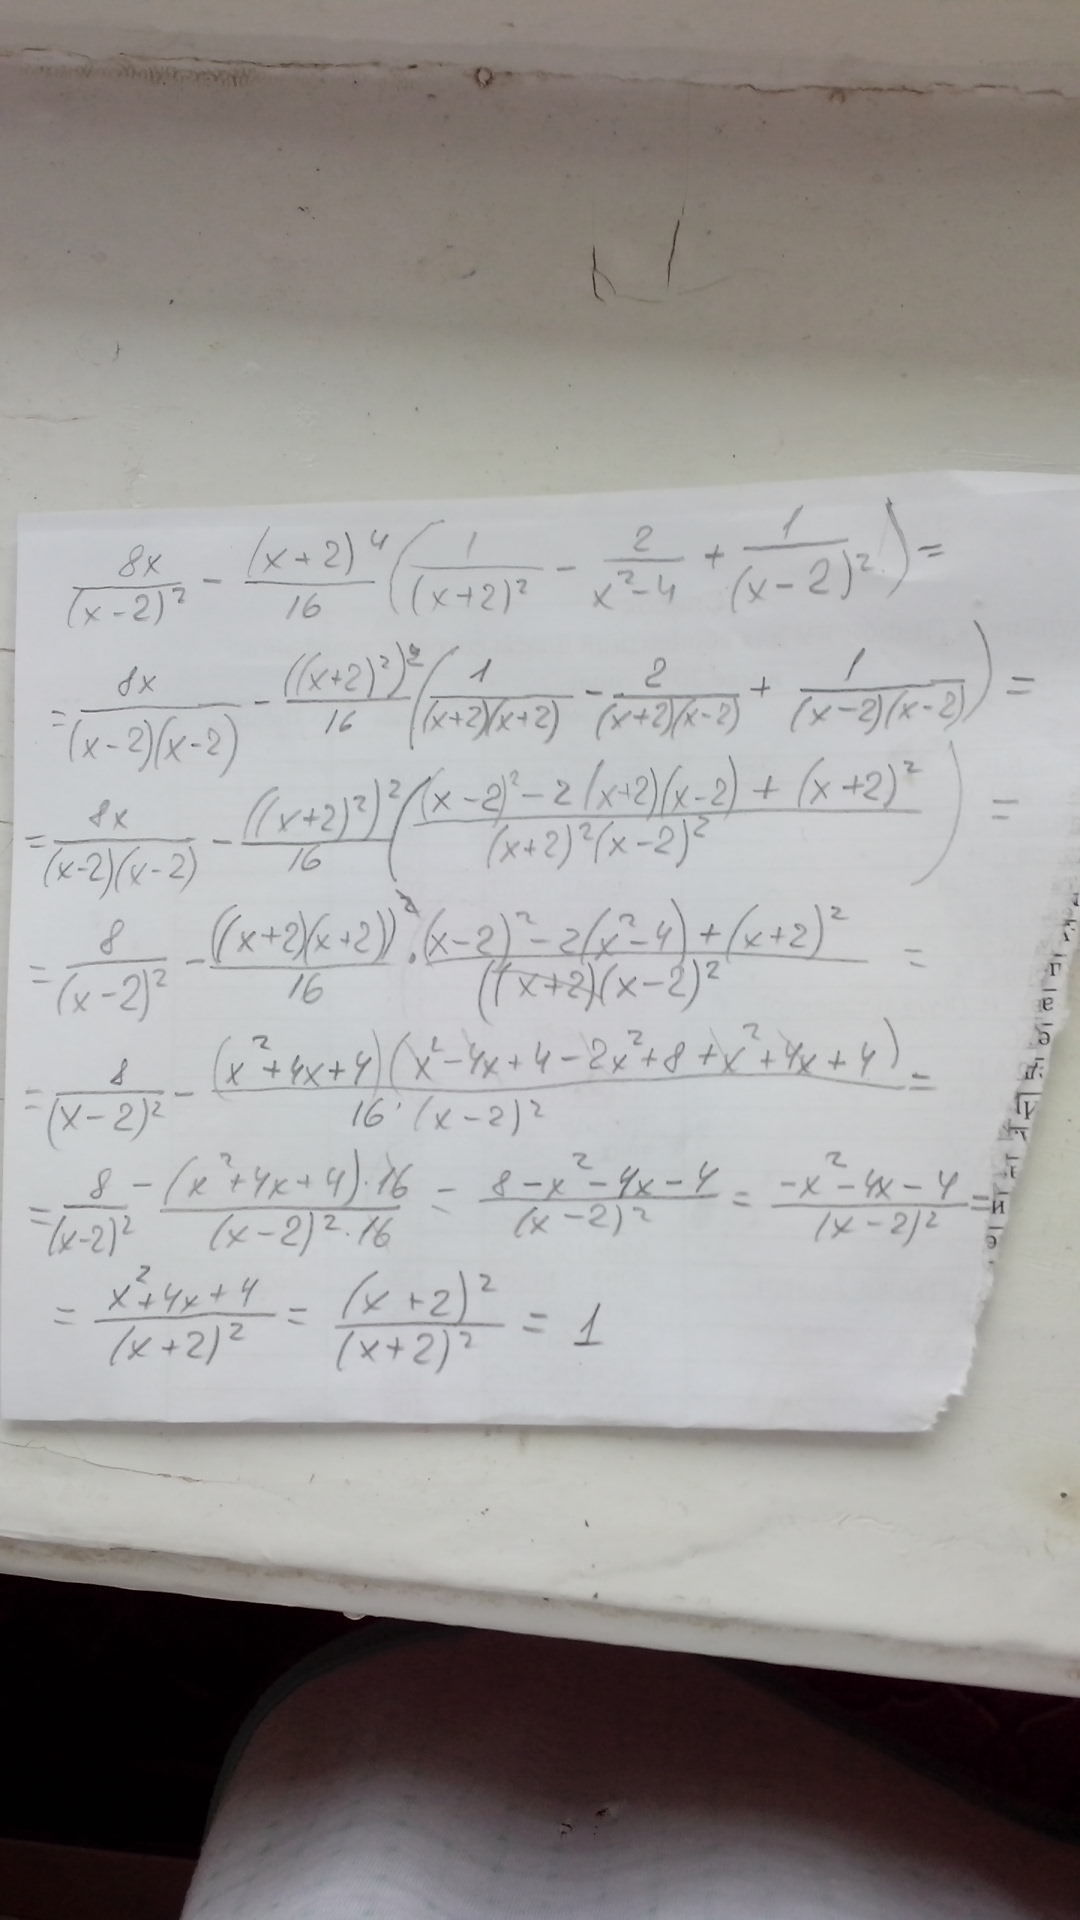 8x/(x-2)² - (x+2)⁴/16 (1/(x+2)² - 2/(x²-4) + 1/(x-2)²) =
= 8x/((x-2)(x-2)) - ((x+2)²)²/16 (1/((x+2)(x+2)) - 2/((x+2)(x-2)) + 1/((x-2)(x-2))) =
= 8x/((x-2)(x-2)) - ((x+2)²)²/16 (((x-2)² - 2(x+2)(x-2) + (x+2)²)/((x+2)²(x-2)²)) =
= 8/(x-2)² - ((x+2)(x+2))²/16 · ((x-2)² - 2(x²-4) + (x+2)²)/((x+2)(x-2)² =
= 8/(x-2)² - (x²+4x+4)(x²-4x+4-2x²+8+x²+4x+4)/(16·(x-2)²) =
= 8/(x-2)² - (x²+4x+4)·16/((x-2)²·16) = (8-x²-4x-4)/(x-2)² = (-x²-4x-4)/(x-2)² =
= (x²+4x+4)/(x+2)² = (x+2)²/(x+2)² = 1